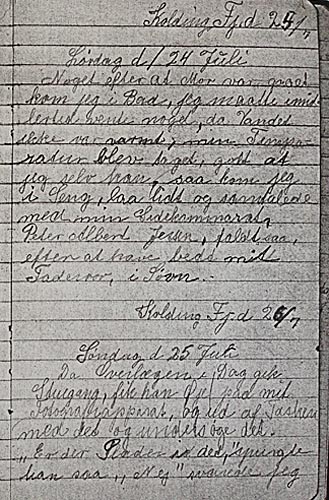 Kolding Fj. d 25/7
Lördag d/ 24 Juli
Noget efter at Mor var gaaet
kom jeg i Bad, jeg maatte imid
lertid vente noget, da Vandet
ikke var varmt, min Tempe
ratur blev taget, godt at
jeg selv kan saa kom jeg
i Seng, laa lidt og samtalede
med min Sidekammarat,
Peter Albert Jesen, faldt saa,
efter at have bedt mit
Fadervor, i Sövn.
Kolding Fj. d 26/7
Söndag d 25 Juli
Da Overlægen i Dag gik
Stuegang, fik han Öje paa mit
Fotografiapparat, og ud af Tasken
med det og undersøge det.
„Er der Plader i det," spurgte
han saa „Nej" svarede jeg